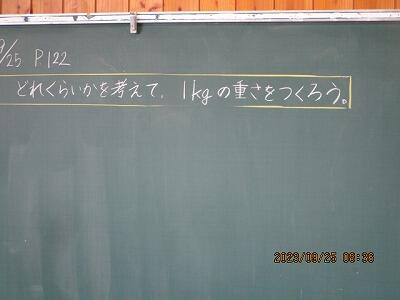 9/25 P122
どれくらいかを考えて、1kgの重さをつくろう。
2023/09/25 08:36